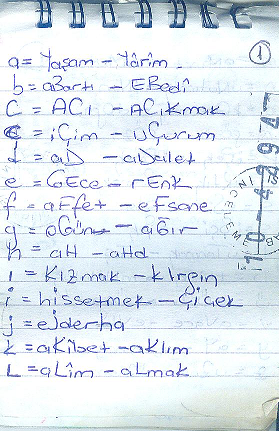 1
a = Yaşam - Yârîm.
b = aBartı - EBedî
C = ACı - ACıkmak
Ç = içim - uÇurum
d = aD - aDalet
e = GEce - rEnk
f = aFfet - eFsane
g = - aĞır
h = aH - aHd
ı = Kızmak - kIrgın
i = hissetmek - Çiçek
j = eJderha
k = aKîbet - aKlım
L = aLîm - aLmak
İNCELEME
10-42974